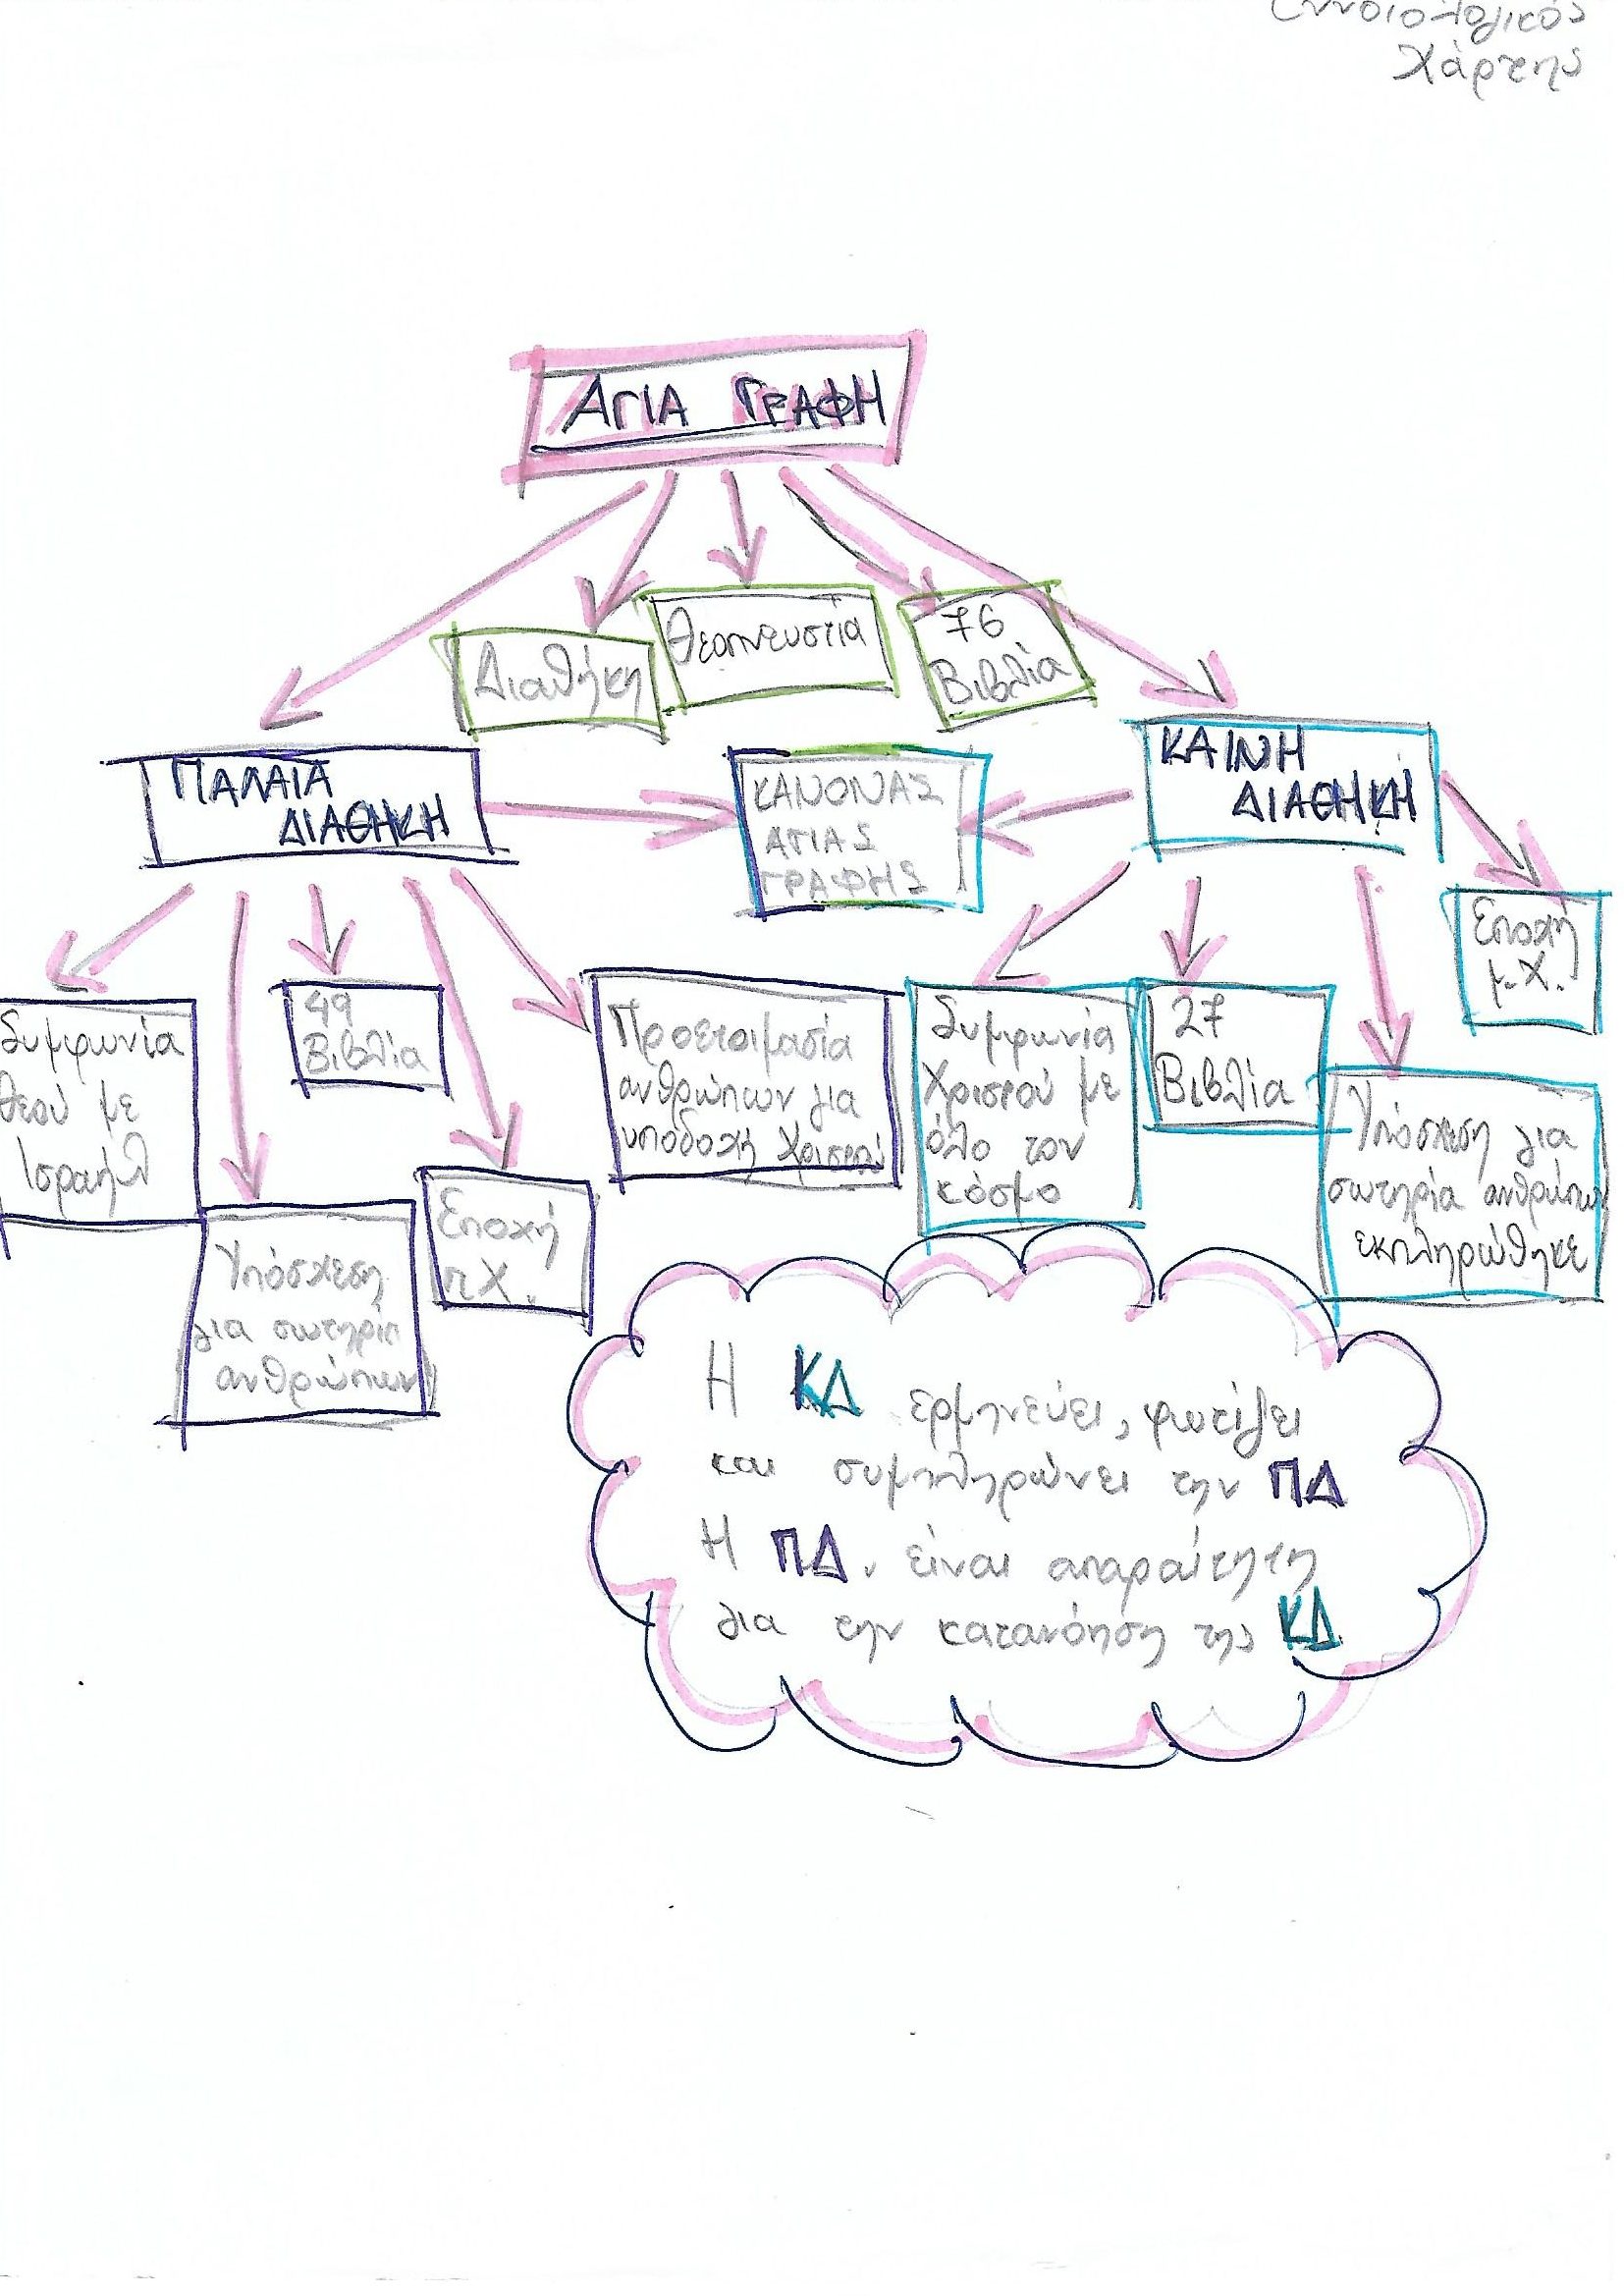 Εννοιολογικός
Χάρτης
ΑΓΙΑ ΓΡΑΦΗ
Διαθήκη
Θεοπνευστία
76
Βιβλία
ΠΑΛΑΙΑ
ΔΙΑΘΗΚΗ
ΚΑΝΟΝΑΣ
ΑΓΙΑΣ
ΓΡΑΦΗΣ
ΚΑΙΝΗ
ΔΙΑΘΗΚΗ
Εποχή
μ.Χ.
Συμφωνία
Θεού με
Ισραήλ
Υπόσχεση
για σωτηρία
ανθρώπων
49
Βιβλία
Εποχή
π.Χ.
Προετοιμασία
ανθρώπων για
υποδοχή Χριστού
Συμφωνία
Χριστού με
όλο τον
κόσμο
27
Βιβλία
Υπόσχεση για
σωτηρία ανθρώπων
εκπληρώθηκε
Η ΚΔ ερμηνεύει, φωτίζει
και συμπληρώνει την ΠΔ
Η ΠΔ. είναι απαραίτητη
για την κατανόηση της ΚΔ